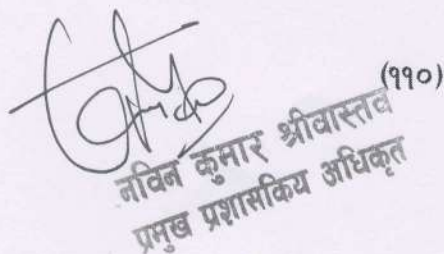 (११०)
नविन कुमार श्रीवास्तव
प्रमुख प्रशासकिय अधिकृत